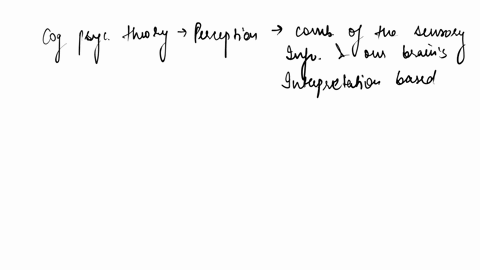 Cog psyc. theory → Perception → comb of the sensory
Info. & our brain's
Interpretation based